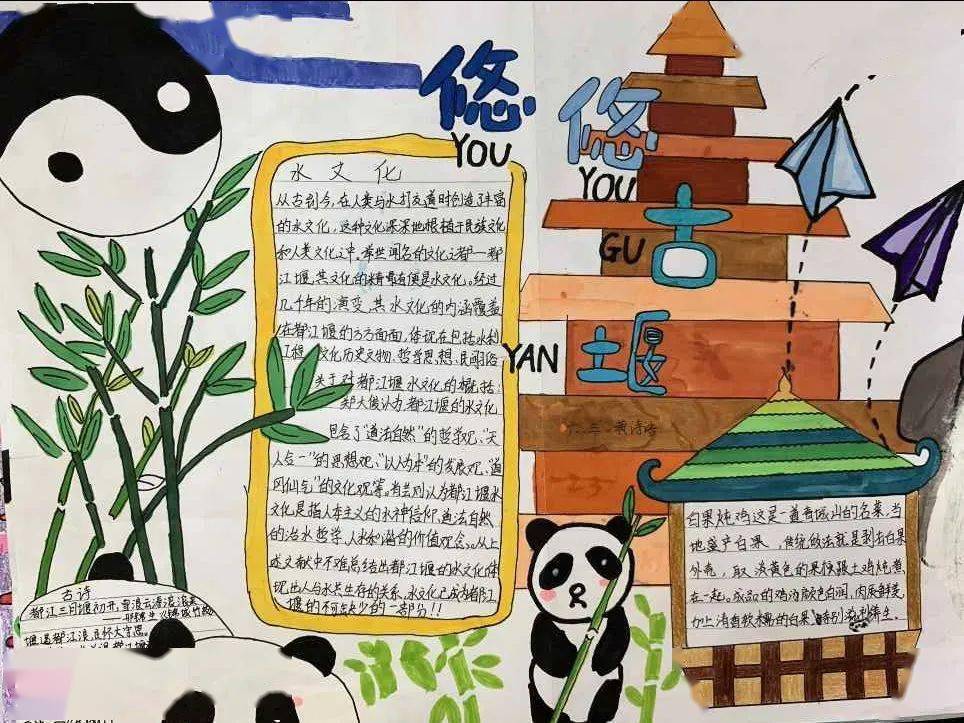 悠
YOU
悠
YOU
古
GU
堰
YAN
水文化
从古到今,在人类与水打交道时创造了丰富
的水文化,这种文化深深地根植于民族文化
和人类文化之中。举世闻名的文化之都一都
江堰,其文化的精最有便是水文化。经过
几千年的演变,其水文化的内涵覆盖
在都江堰的方方面面,体现在包括水利
工程、文化历史文物、哲学思想、民习俗
关于对都江堰水文化的概括:
郑大俊认为都江堰的水文化
包含了"道法自然"的哲学观、"天
人合一"的思想观、"以人为本"的发展观、道
风仙气"的文化观等。有些则认为都江堰水
文化是指人本主义的水神信仰,道法自然
的治水哲学,人水和谐的价值观念。从上
述文献中不难总结出都江堰的水文化体
现出人与水共生存的关系,水文化已成为都江
堰的不可缺少的一部分!!
六.三.黄诗
白果炖鸡这是一道青城山的名菜。当
地盛产白果,传统做法就是剥去白果
外壳,取淡黄色的果仁跟土鸡炖煮
在一起。成品的鸡汤颜色白润,肉质鲜美
加上清香软糯的白果,特别滋补养生。
古诗
都江三月堰初开,雪浪云涛滚滚来
堰逼都江浪